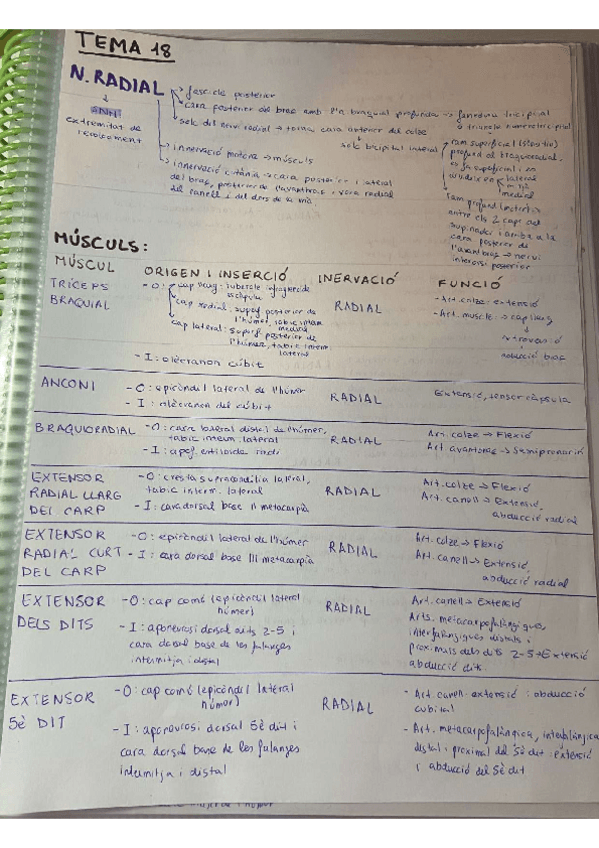 TEMA 18
N. RADIAL
→ fascicle posterior
→ cara posterior del braç amb l'a. braquial profunda → fenedura tricipital
o triangle humerotricipital
→ solc del nervi radial → torna cara anterior del colze
→ solc bicipital lateral
extremitat de
→ innervació motora → músculs
→ innervació cutània → cara posterior i lateral
del braç, posterior de l'avantbraç i vora radial
del canell i del dors de la mà
ram superficial
profund al braquioradial
medial
ram profund
entre els 2 caps del
supinador i arriba a la
cara posterior de
l'avantbraç → nervi
interossi posterior
MÚSCULS:
MÚSCUL ORIGEN I INSERCIÓ INERVACIÓ FUNCIÓ
TRÍCEPS
BRAQUIAL
- O: cap llarg: tubercle infraglenoide
escàpula
cap medial: superf. posterior de
l'húmer, tabic interm.
medial
cap lateral: superf. posterior de
l'húmer, tabic interm.
lateral
- I: olècranon cúbit
RADIAL
- Art. colze: extensió
- Art. muscle → cap llarg
→ retroversió
adducció braç
ANCONI
- O: epicòndil lateral de l'húmer
- I: olècranon del cúbit
RADIAL
Extensió, tensor càpsula
BRAQUIORADIAL
- O: cara lateral distal de l'húmer,
tabic interm. lateral
- I: apòf. estiloide radi
RADIAL
Art. colze → Flexió
Art avantbraç → Semipronació
EXTENSOR
RADIAL LLARG
DEL CARP
- O: cresta supracondília lateral,
tabic interm. lateral
- I: cara dorsal base II metacarpià
RADIAL
Art. colze → Flexió
Art. canell → Extensió,
abducció radial
EXTENSOR
RADIAL CURT
DEL CARP
- O: epicòndil lateral de l'húmer
- I: cara dorsal base III metacarpià
RADIAL
Art. colze → Flexió
Art. canell → Extensió,
abducció radial
EXTENSOR
DELS DITS
- O: cap comú (epicòndil lateral
húmer)
- I: aponeurosi dorsal dits 2-5 i
cara dorsal base de les falanges
intermitja i distal
RADIAL
Art. canell → Extensió
Arts. metacarpofalàngiques,
interfalàngiques distals i
proximals dels dits 2-5 → Extensió
abducció dits.
EXTENSOR
5è DIT
- O: cap comú (epicòndil lateral
húmer)
- I: aponeurosi dorsal 5è dit i
cara dorsal base de les falanges
intermitja i distal
RADIAL
- Art. canell extensió i abducció
cubital
- Art. metacarpofalàngica, interfalàngica
distal i proximal del 5è dit: extensió
i abducció del 5è dit